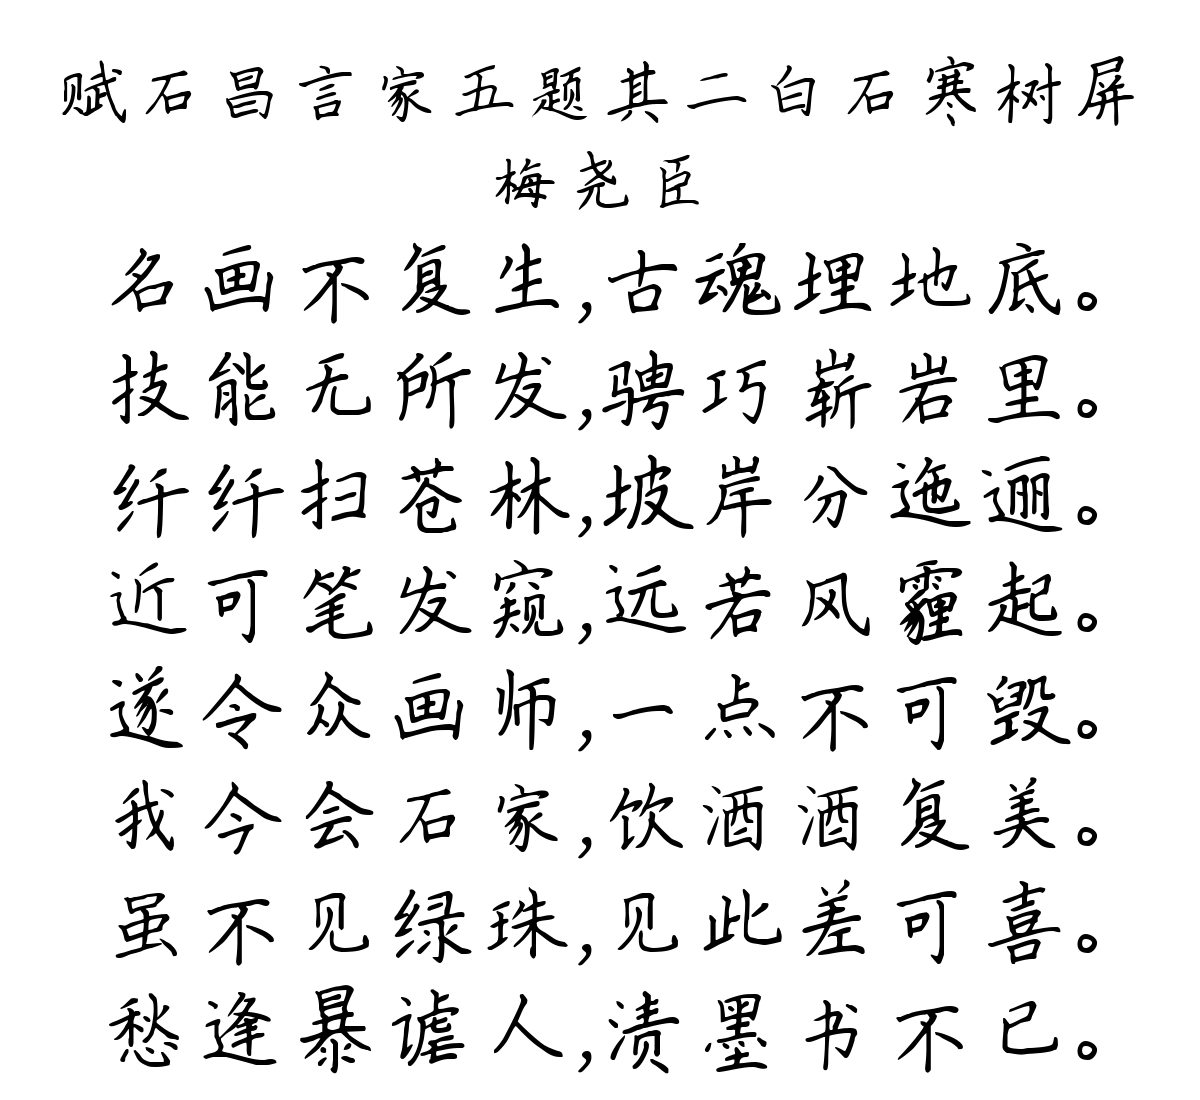 赋石昌言家五题其二白石寒树屏
梅尧臣
名画不复生,古魂埋地底。
技能无所发,骋巧崭岩里。
纤纤扫苍林,坡岸分迤逦。
近可笔发窥,远若风霾起。
遂令众画师,一点不可毁。
我今会石家,饮酒酒复美。
虽不见绿珠,见此差可喜。
愁逢暴谑人,渍墨书不已。